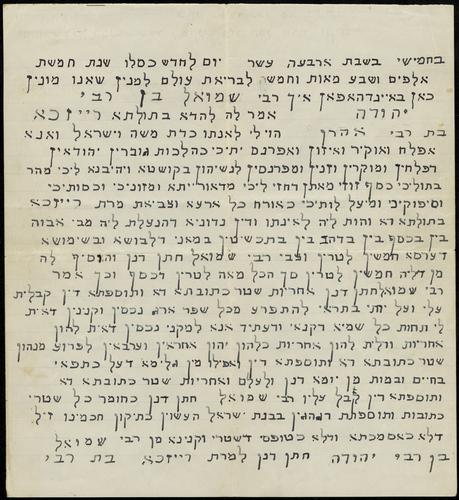 בחמישי בשבת ארבעה עשר יום לחדש כסלו שנת חמשת
אלפים ושבע מאות וחמש לבריאת עולם למנין שאנו מונין
כאן איך רבי שמואל בן רבי
יהודה אמר לה להדא בתולתא רייזכא
בת רבי אהרן הוי לי לאנתו כדת משה וישראל ואנא
אפלח ואוקיר ואיזון ואפרנס יתיכי כהלכות גוברין יהודאין
דפלחין ומוקרין וזנין ומפרנסין לנשיהון בקושטא ויהיבנא ליכי מהר
בתוליכי כסף זוזי מאתן דחזי ליכי מדאורייתא ומזוניכי וכסותיכי
וסיפוקיכי ומיעל לותיכי כאורח כל ארעא וצביאת מרת רייזכא
בתולתא דא והות ליה לאינתו ודין נדוניא דהנעלת ליה מבי אבוה
בין בכסף בין בדהב בין בתכשיטין במאני דלבושא ובשימושא
דערסא חמשין לטרין וצבי רבי שמואל חתן דנן והוסיף לה
מן דליה חמשין לטרין סך הכל מאה לטרין דכסף וכך אמר
רבי שמואל חתן דנן אחריות שטר כתובתא דא ותוספתא דין קבלית
עלי ועל ירתי בתראי להתפרע מכל שפר ארג נכסין וקנינין דאית
לי תחות כל שמיא דקנאי ודעתיד אנא למקני נכסין דאית להון
אחריות ודלית להון אחריות כלהון יהון אחראין וערבאין לפרוע מנהון
שטר כתובתא דא ותוספתא דין ואפילו מן גלימא דעל כתפאי
בחיים ובמות מן יומא דנן ולעלם ואחריות שטר כתובתא דא
ותוספתא דין קבל עליו רבי שמואל חתן דנן כחומר כל שטרי
כתובות ותוספתות דנהגין בבנת ישראל העשוין כתיקון חכמינו ז"ל
דלא כאסמכתא ודלא כטופסי דשטרי וקנינא מן רבי שמואל
בן רבי יהודה חתן דנן למרת רייזכא בת רבי